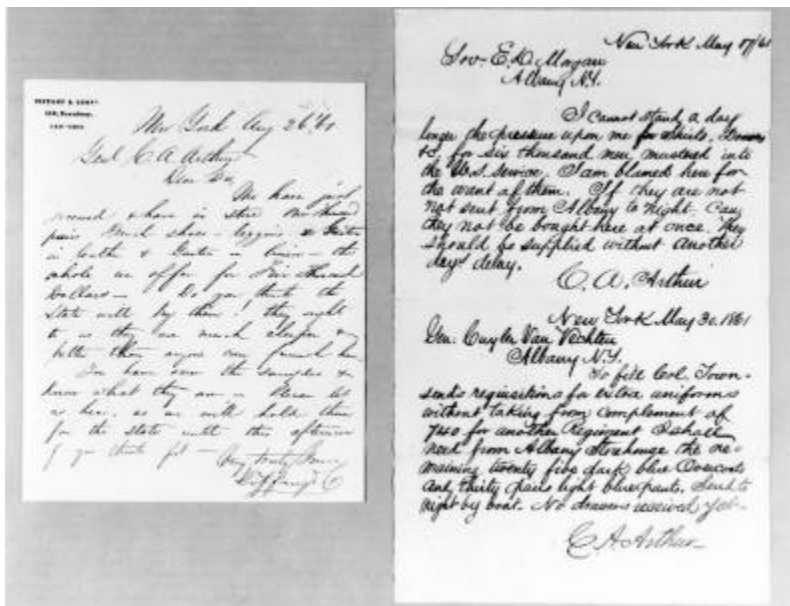 TIFFANY & COMPY
550, Broadway,
NEW-YORK
New York Aug 26 '61
Genl C. A. Arthur
Dear Sir
We have just
received & have in store
pairs French shoes - leggins & Gaiters
in leather & Gaiters in linen - the
whole we offer for Five thousand
Dollars - Do you think the
State will buy them? they ought
to as they are much cheaper &
better than anyone can furnish here
You have seen the samples &
know what they are - Please let
us hear, as we will hold them
for the State until this afternoon
if you think fit -
Very truly Yours
Tiffany & Co
New York May 17/61
Gov- E. D. Morgan
Albany N.Y.
I cannot stand a day
longer the pressure upon me for shirts, Drawers
&c for six thousand men mustered into
the U.S. Service. I am blamed here for
the want of them. If they are not
not sent from Albany to night. Can
they not be bought here at once. They
should be supplied without another
day's delay.
C. A. Arthur
New York May 30, 1861
Gen. Cuyler Van Vechten
Albany N.Y.
To fill Col. Town-
send's requisitions for extra uniforms
without taking from complement of
740 for another Regiment I shall
need from Albany Storehouse the re-
maining twenty five dark blue Overcoats
and thirty pairs light blue pants. Send to
night by boat. No drawers received yet-
C. A. Arthur-